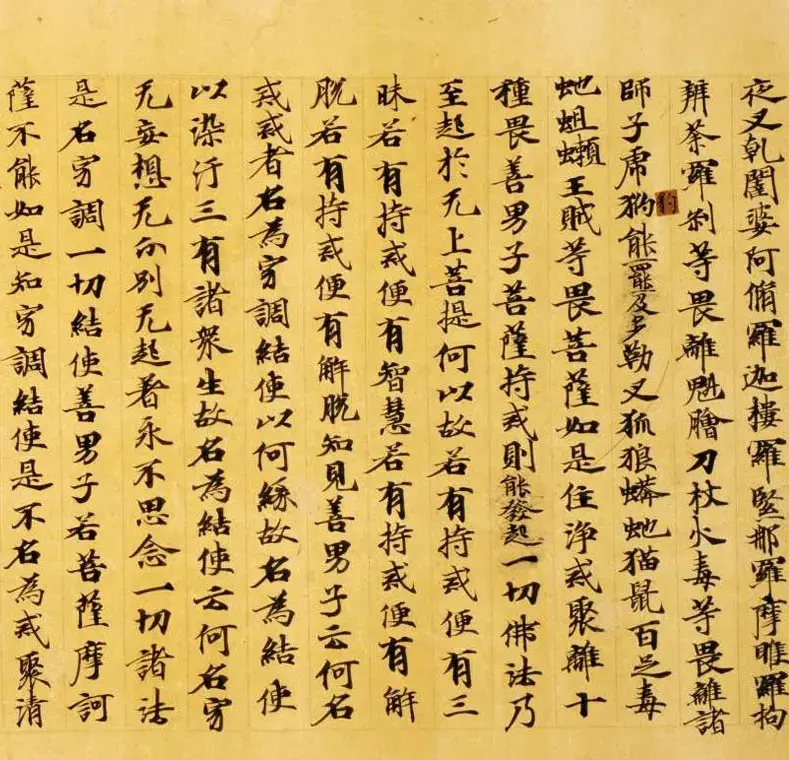 夜叉乹闥婆阿脩羅迦樓羅堅那羅摩睺羅拘
辨荼羅刹等畏離魁膾刀杖火毒等畏離諸
師子虎豹能羆及多勒叉狐狼蟒虵猫鼠百足毒
虵蛆王賊等畏菩薩如是住浄戒聚離十
種畏善男子菩薩持戒則能發起一切佛法乃
至起於无上菩提何以故若有持戒便有三
昧若有持戒便有智慧若有持戒便有解
脱若有持戒便有解脱知見善男子云何名
戒戒者名為穷調結使以何緣故名為結使
以染汙三有諸衆生故名為結使云何名穷
无妄想无分別无起著永不思念一切諸法
是名穷調一切結使善男子若菩薩摩訶
薩不能如是知穷調結使是不名為戒聚清